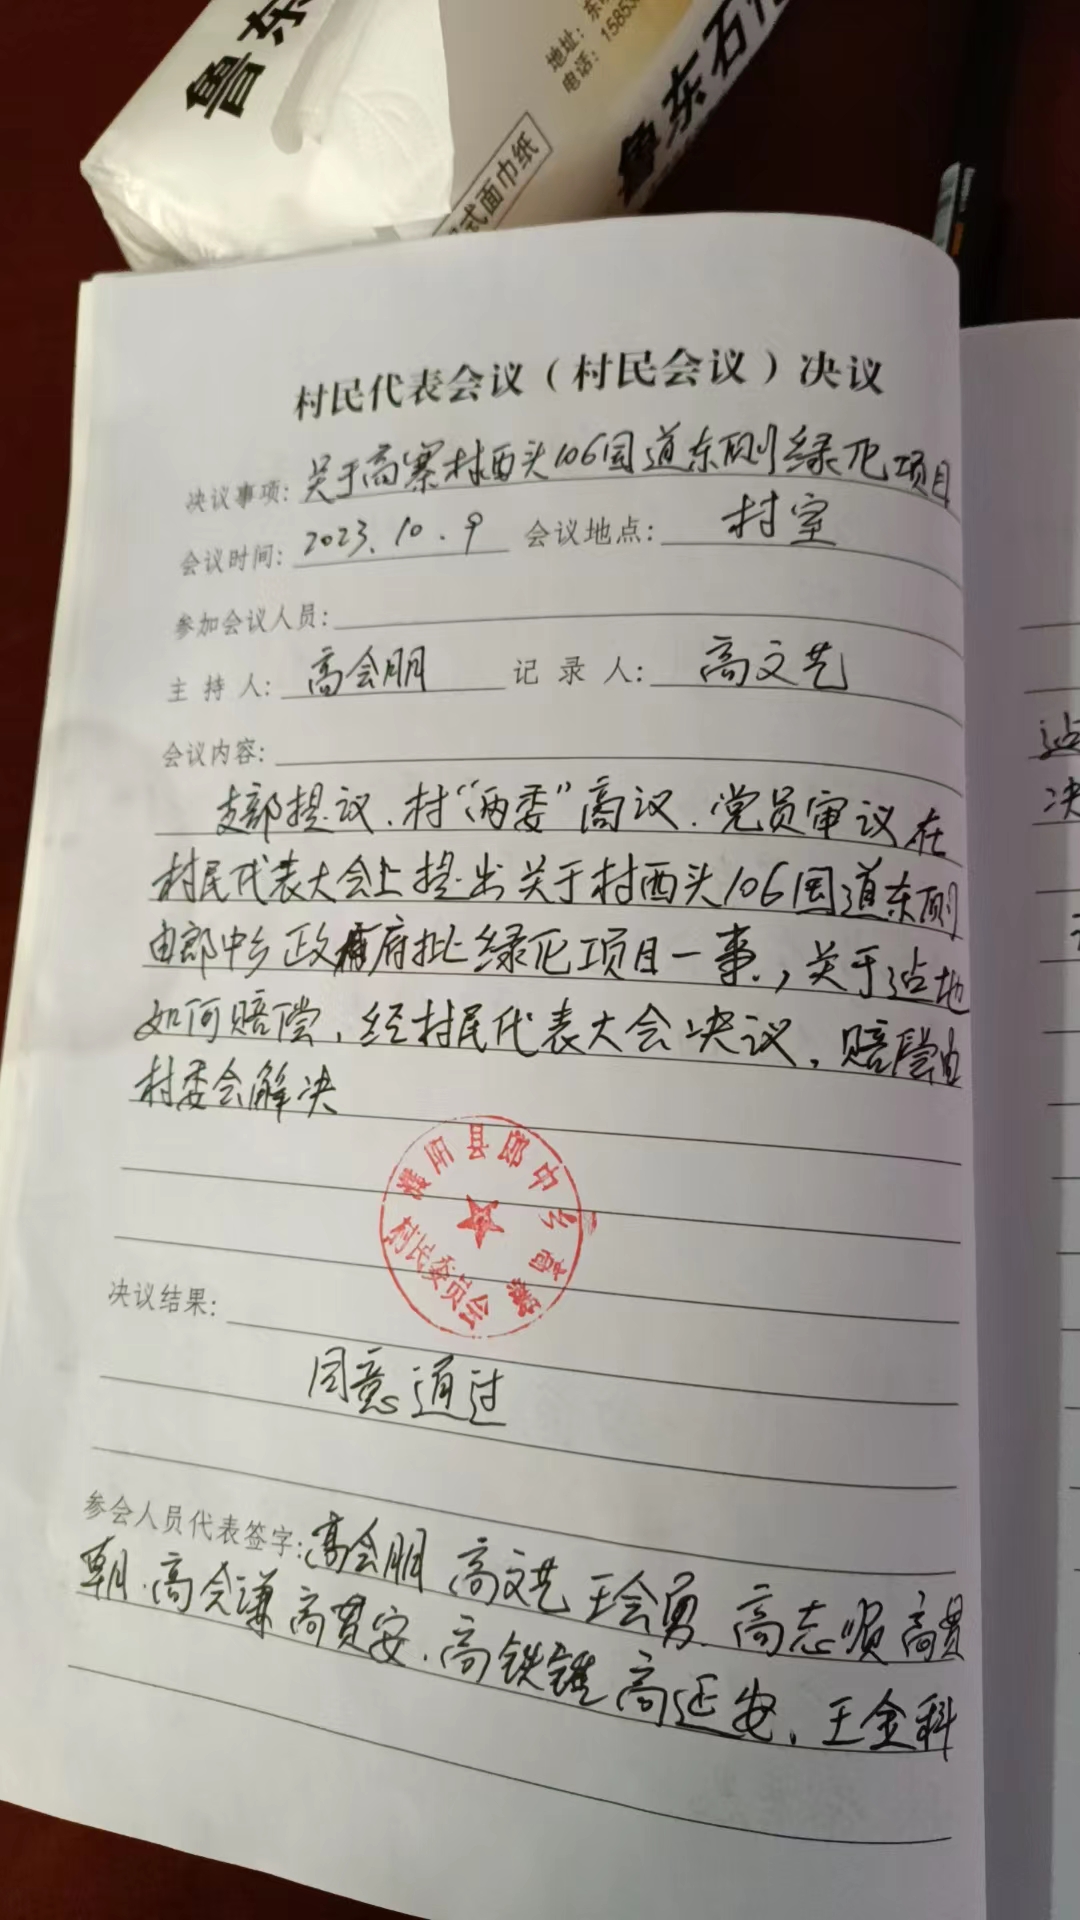 鲁东
地址：东
电话：15853
鲁东石化
式面巾纸
村民代表会议（村民会议）决议
决议事项：关于高寨村西头106国道东侧绿化项目
会议时间：2023.10.9 会议地点：村室
参加会议人员：
主持人：高会朋 记录人：高文艺
会议内容：
支部提议、村“两委”商议、党员审议在
村民代表大会上提出关于村西头106国道东侧
由郎中乡政府批绿化项目一事，关于占地
如何赔偿，经村民代表大会决议，赔偿由
村委会解决
濮阳县郎中乡高寨
村民委员会
决议结果：
同意通过
参会人员代表签字：高会朋 高文艺 王会勇、高志顺 高贯
朝、高会谦 高贯安、高铁锤 高延安、王金科
占
决